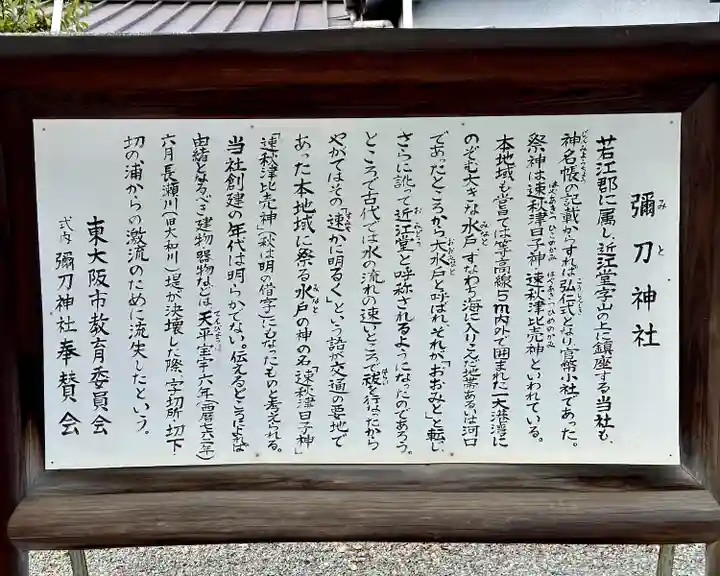 彌刀神社
若江郡に属し、近江堂字山の上に鎮座する当社も、
神名帳の記載からすれば弘仁式となり、官幣小社であった。
祭神は速秋津日子神、速秋津比売神といわれている。
本地域も昔では等高線5m内外で囲まれた一大港湾に
のぞむ大きな水戸、すなわち海に入りこむ地帯あるいは河口
であったところから大水戸と呼ばれ、それが「おおみと」と転じ、
さらに訛って近江堂と呼称されるようになったのであろう。
ところで古代では水の流れの速いところで祓を行なったから
やがてはその「速かに明るく」という語が交通の要地で
あった本地域に祭る水戸の神の名「速秋津日子神」
「速秋津比売神」(秋は明の借字)にもなったものと考えられる。
当社創建の年代は明らかでない。伝えるところによれば
由緒となるべき建物、器物などは天平宝字六年(西暦七六二年)
六月長瀬川(旧大和川)堤が決壊した際、字切所、切下
切の浦からの激流のために流失したという。
東大阪市教育委員会
式内 彌刀神社奉賛会